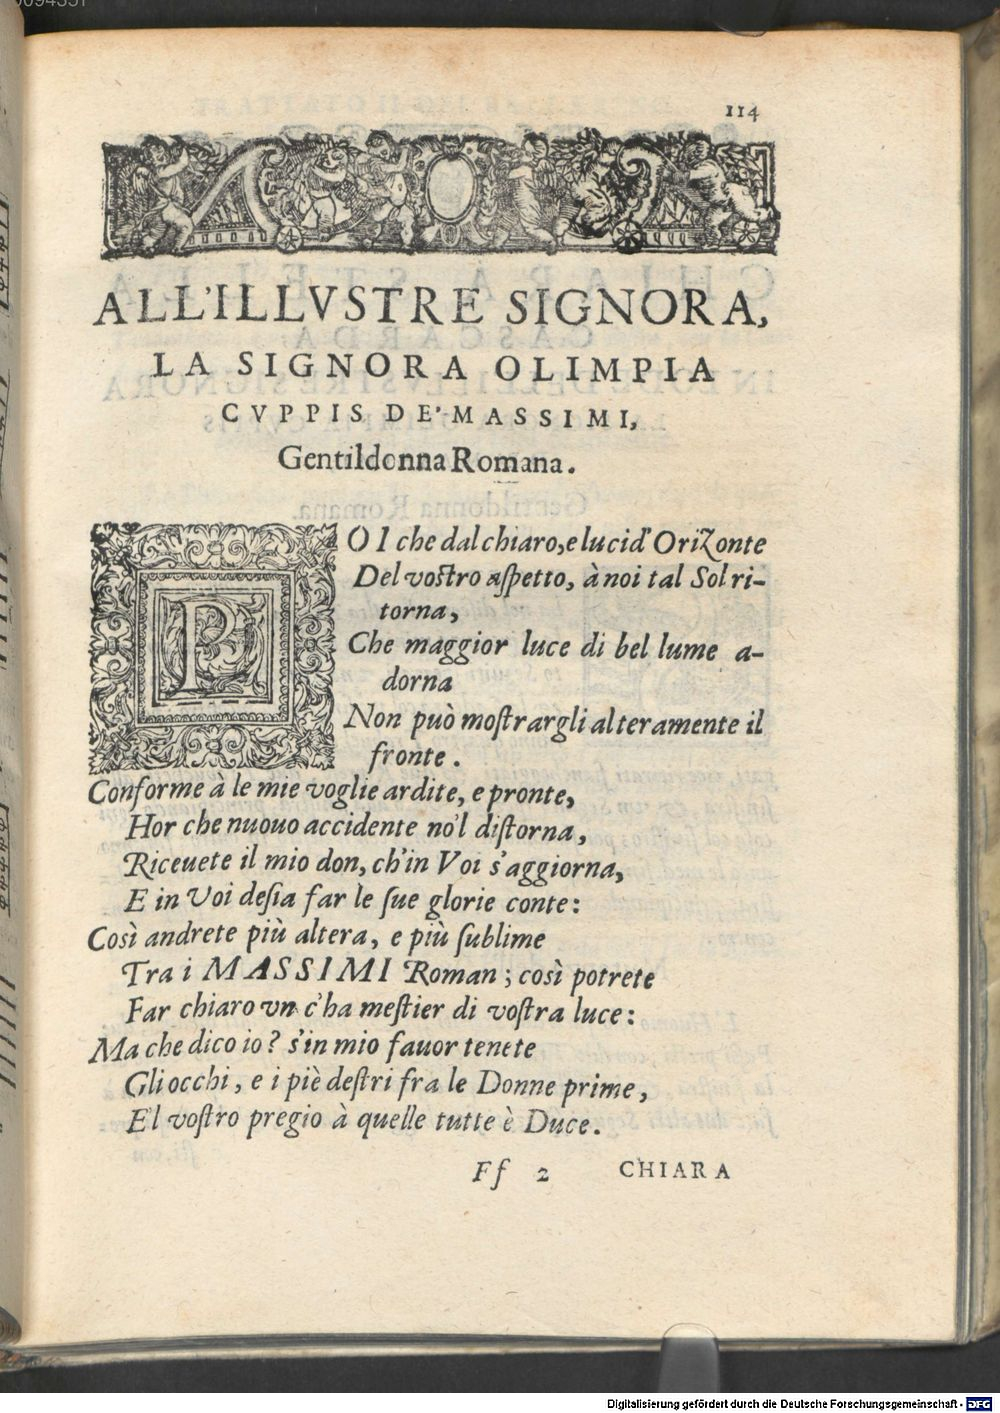 114
ALL'ILLVSTRE SIGNORA,
LA SIGNORA OLIMPIA
CVPPIS DE' MASSIMI,
Gentildonna Romana.
POI che dal chiaro, e lucid' Orizonte
Del vostro aspetto, à noi tal Sol ri-
torna,
Che maggior luce di bel lume a-
dorna
Non può mostrargli alteramente il
fronte.
Conforme à le mie voglie ardite, e pronte,
Hor che nuouo accidente no'l distorna,
Riceuete il mio don, ch'in Voi s'aggiorna,
E in Voi desia far le sue glorie conte:
Così andrete più altera, e più sublime
Tra i MASSIMI Roman; così potrete
Far chiaro vn c'ha mestier di vostra luce:
Ma che dico io? s'in mio fauor tenete
Gli occhi, e i piè destri fra le Donne prime,
E'l vostro pregio à quelle tutte è Duce.
Ff 2 CHIARA
Digitalisierung gefördert durch die Deutsche Forschungsgemeinschaft - DFG